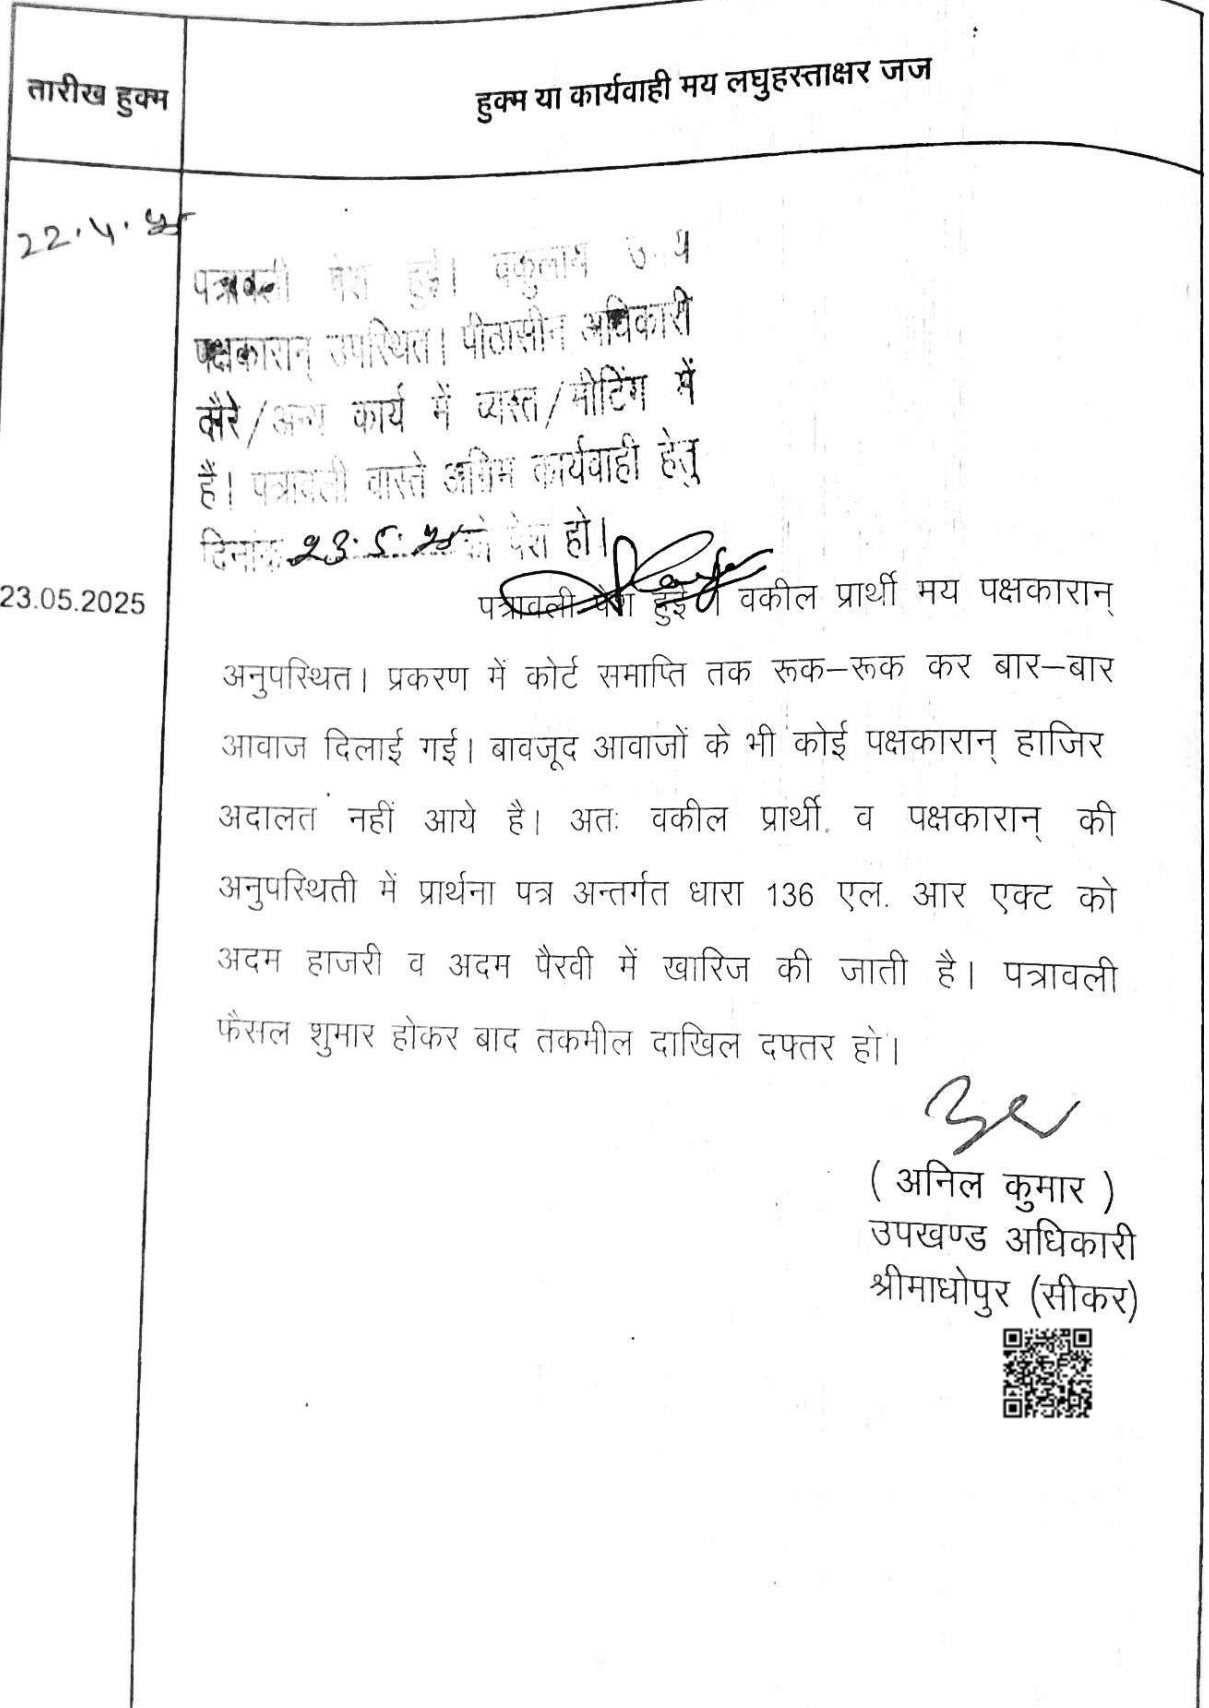 तारीख हुक्म
हुक्म या कार्यवाही मय लघुहस्ताक्षर जज
22.4.25
पत्रावली पेश हुई। वकुलाय
पक्षकारान् उपस्थित। पीठासीन अधिकारी
दौरे/अन्य कार्य में व्यस्त/मीटिंग में
है। पत्रावली वास्ते अग्रिम कार्यवाही हेतु
दिनांक 23.5.25 को पेश हो।
23.05.2025
पत्रावली पेश हुई। वकील प्रार्थी मय पक्षकारान्
अनुपस्थित। प्रकरण में कोर्ट समाप्ति तक रूक–रूक कर बार–बार
आवाज दिलाई गई। बावजूद आवाजों के भी कोई पक्षकारान् हाजिर
अदालत नहीं आये है। अतः वकील प्रार्थी व पक्षकारान् की
अनुपस्थिती में प्रार्थना पत्र अन्तर्गत धारा 136 एल. आर एक्ट को
अदम हाजरी व अदम पैरवी में खारिज की जाती है। पत्रावली
फैसल शुमार होकर बाद तकमील दाखिल दफ्तर हो।
( अनिल कुमार )
उपखण्ड अधिकारी
श्रीमाधोपुर (सीकर)